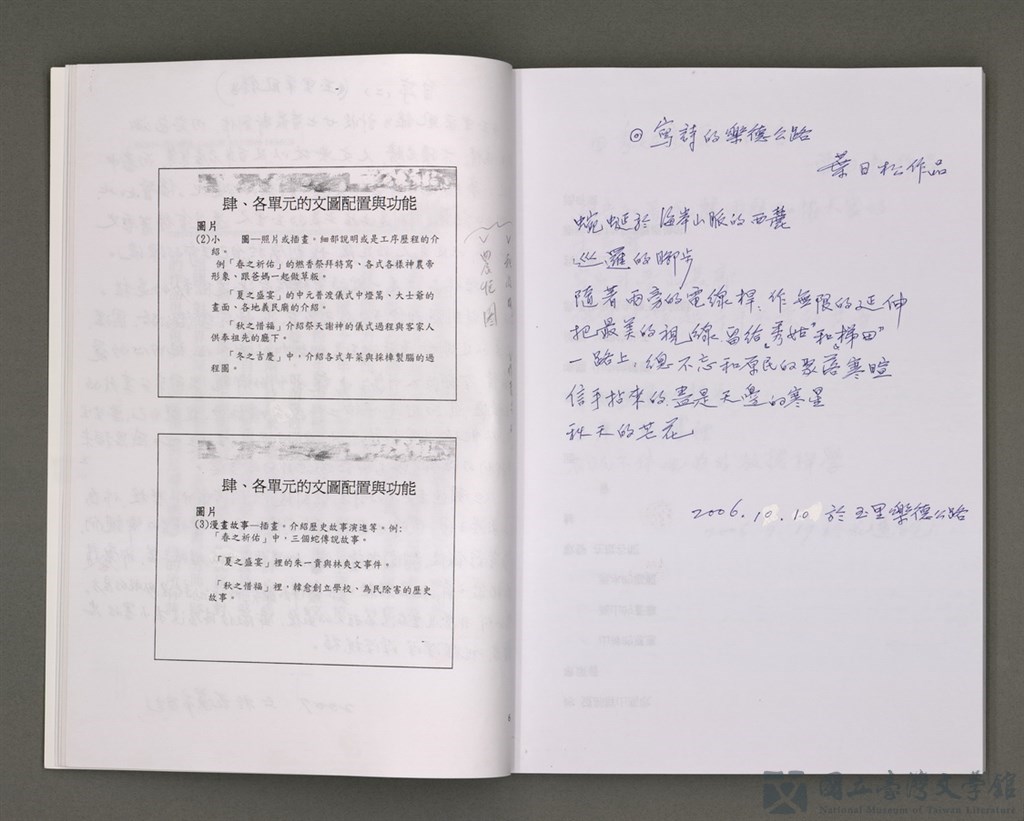 肆、各單元的文圖配置與功能
圖片
(2)小　圖—照片或插畫。細部說明或是工序歷程的介
紹。
例「春之祈佑」的燃香祭拜特寫、各式各樣神農帝
形象、跟爸媽一起做草粄。
「夏之盛宴」的中元普渡儀式中燈篙、大士爺的
畫面、各地義民廟的介紹。
「秋之惜福」介紹祭天謝神的儀式過程與客家人
供奉祖先的廳下。
「冬之吉慶」中，介紹各式年菜與採樟製腦的過
程圖。
肆、各單元的文圖配置與功能
圖片
(3)漫畫故事—插畫。介紹歷史故事演進等。例:
「春之祈佑」中，三個蛇傳說故事。
「夏之盛宴」裡的朱一貴與林爽文事件。
「秋之惜福」裡，韓愈創立學校、為民除害的歷史
故事。
◎寫詩的樂德公路
葉日松作品
蜿蜒於海岸山脈的西麓
巡邏的腳步
隨著兩旁的電線桿，作無限的延伸
把最美的視線留給"秀姑"和"梯田"
一路上，總不忘和原民的聚落寒暄
信手拈來的，盡是天壁的寒星
秋天的芒花
2006.10.10於玉里樂德公路
國立臺灣文學館
National Museum of Taiwan Literature